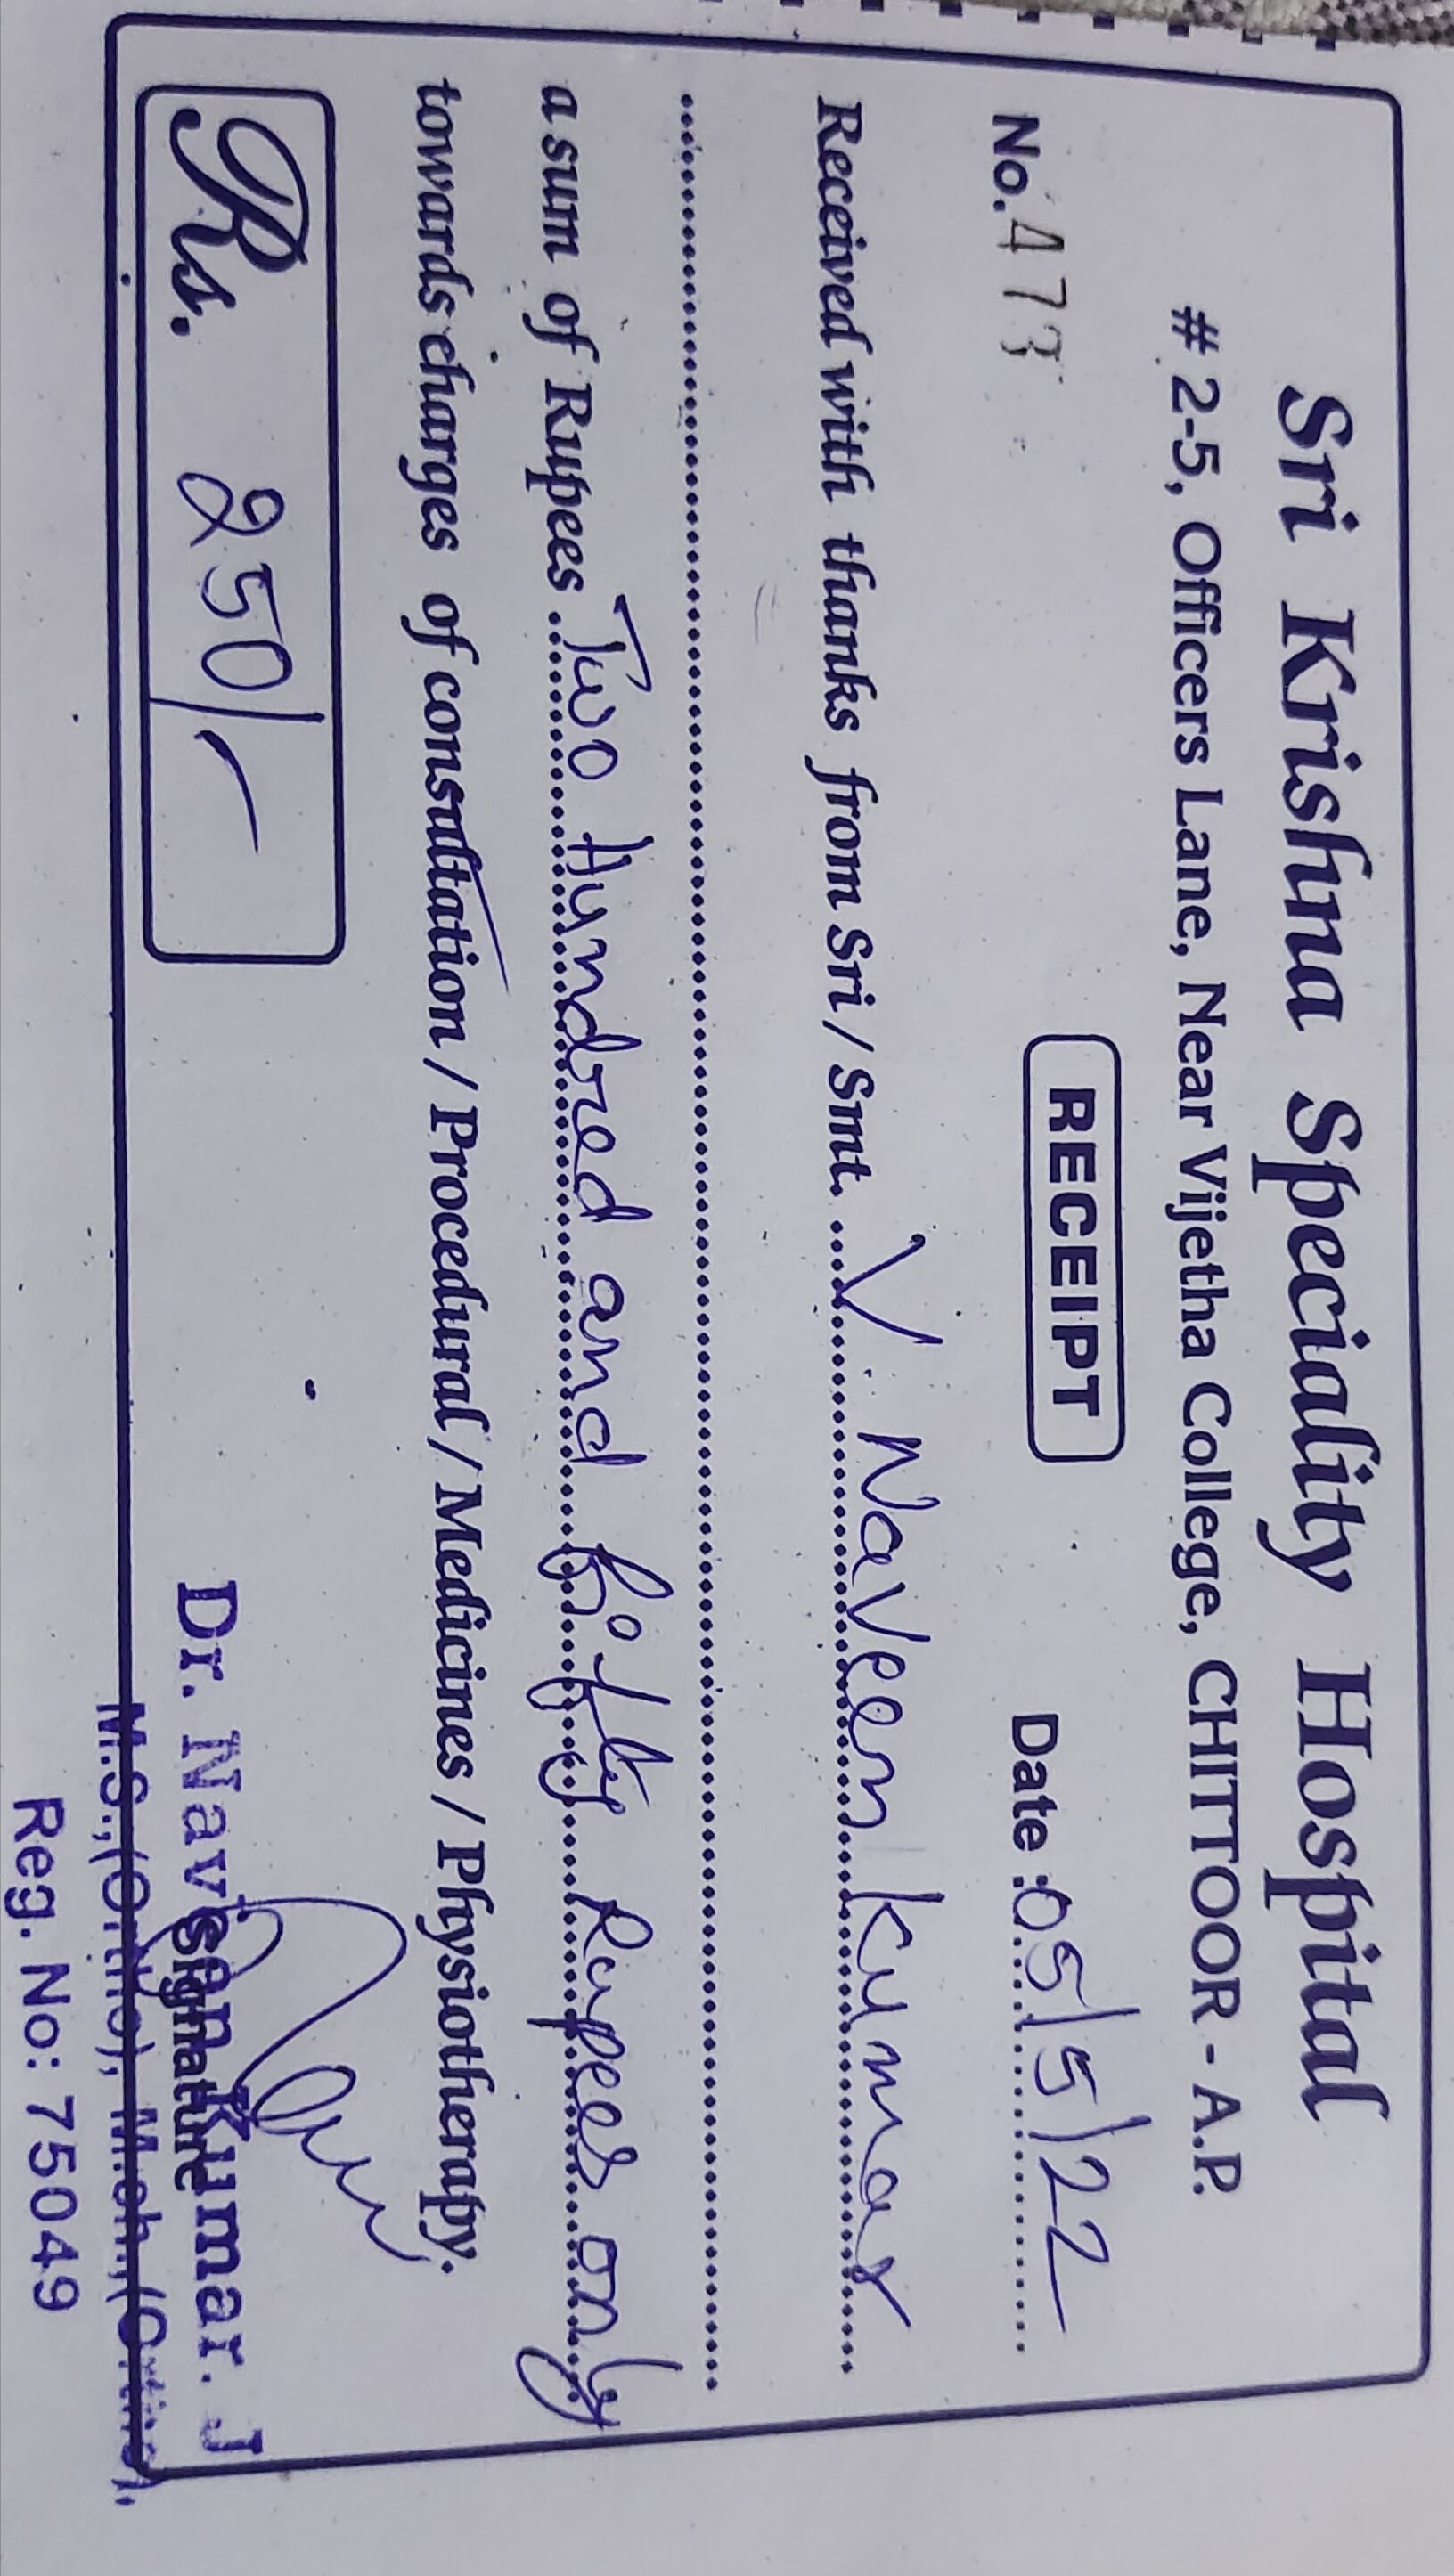 Sri Krishna Speciality Hospital
# 2-5, Officers Lane, Near Vijetha College, CHITTOOR - A.P.
RECEIPT
No. 473 Date : 05/5/22
Received with thanks from Sri / Smt. V. Naveen kumar
a sum of Rupees Two Hundred and fifty Rupees only
towards charges of consultation / Procedural / Medicines / Physiotherapy.
Rs. 250/-
Dr. Naveen Kumar. J
Signature
M.S.,(Ortho), M.ch.,(Ortho).
Reg. No: 75049